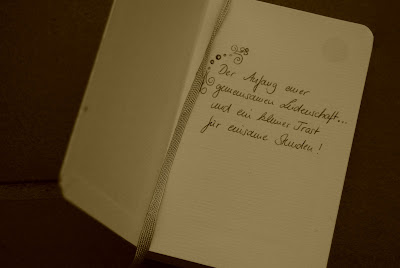 Der Anfang einer
gemeinsamen Leidenschaft...
und ein kleiner Trost
für einsame Stunden!